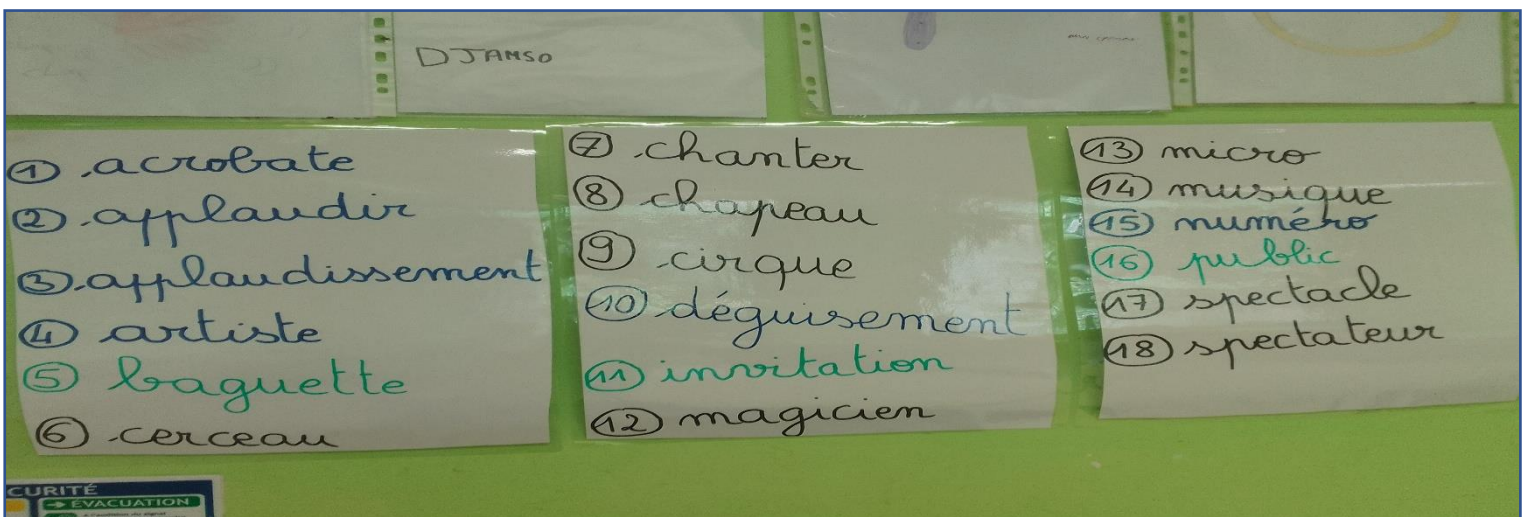 DJAMSO
① acrobate
② applaudir
③ applaudissement
④ artiste
⑤ baguette
⑥ cerceau
⑦ chanter
⑧ chapeau
⑨ cirque
⑩ déguisement
⑪ invitation
⑫ magicien
⑬ micro
⑭ musique
⑮ numéro
⑯ public
⑰ spectacle
⑱ spectateur
CURITÉ
→ ÉVACUATION